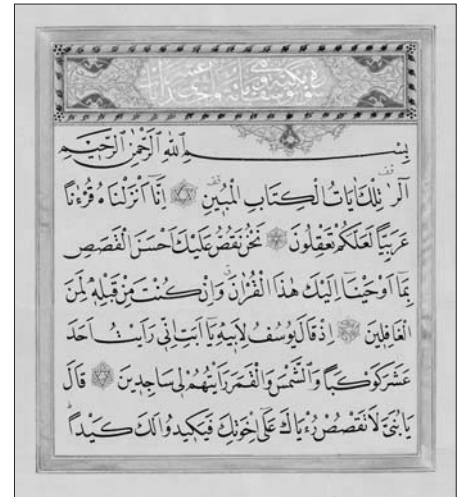 بِسْمِ اللهِ الرَّحْمٰنِ الرَّحِيمِ
الٓرٰ تِلْكَ اٰيَاتُ الْكِتَابِ الْمُبِينِ اِنَّٓا اَنْزَلْنَاهُ قُرْءٰنًا
عَرَبِيًّا لَعَلَّكُمْ تَعْقِلُونَ نَحْنُ نَقُصُّ عَلَيْكَ اَحْسَنَ الْقَصَصِ
بِمَٓا اَوْحَيْنَٓا اِلَيْكَ هٰذَا الْقُرْاٰنَ وَاِنْ كُنْتَ مِنْ قَبْلِهِ لَمِنَ
الْغَافِلِينَ اِذْ قَالَ يُوسُفُ لِاَبِيهِ يَٓا اَبَتِ اِنِّي رَاَيْتُ اَحَدَ
عَشَرَ كَوْكَبًا وَالشَّمْسَ وَالْقَمَرَ رَاَيْتُهُمْ لِي سَاجِدِينَ قَالَ
يَا بُنَيَّ لَا تَقْصُصْ رُءْيَاكَ عَلٰٓى اِخْوَتِكَ فَيَكِيدُوا لَكَ كَيْدًا